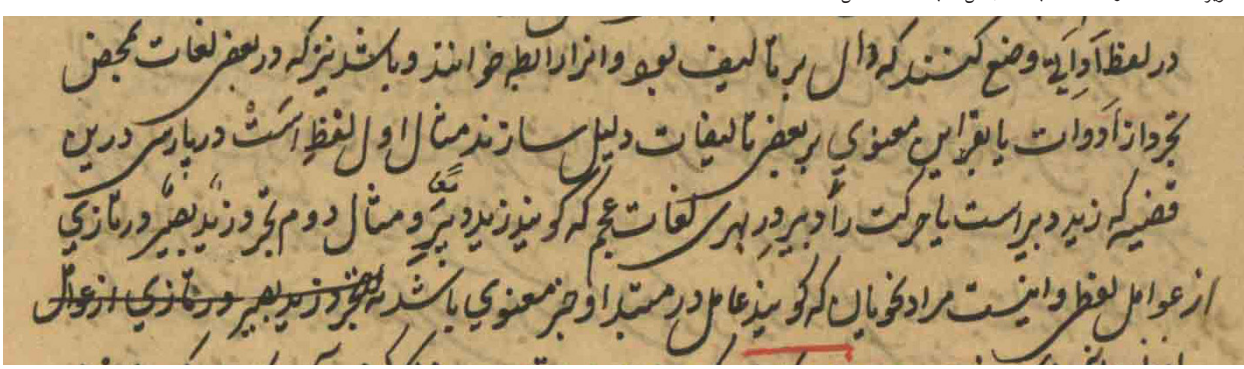 در لفظ اَدَاتی وضع کنند که دال بر تالیف بود و انرا رابطه خوانند و باشد نیز که در بعضی لغات بمحض
تجرد از اَدوات یا بقراین معنوی بر بعضی تالیفات دلیل سازند مثال اول لفظِ اسَتْ در پارسی درین
قضیه که زید دبیر است یا حرکت را دبیر در بهری لغات عجم که کویند زید دبیرِ و مثال دوم تجرد زیدٌ بصیرٌ در تازی
از عوامل لفظی و اینست مراد نحویان که کویند عامل در مبتدا و خبر معنوی باشد نه تجرد زید بصیر در تازی از عوامل